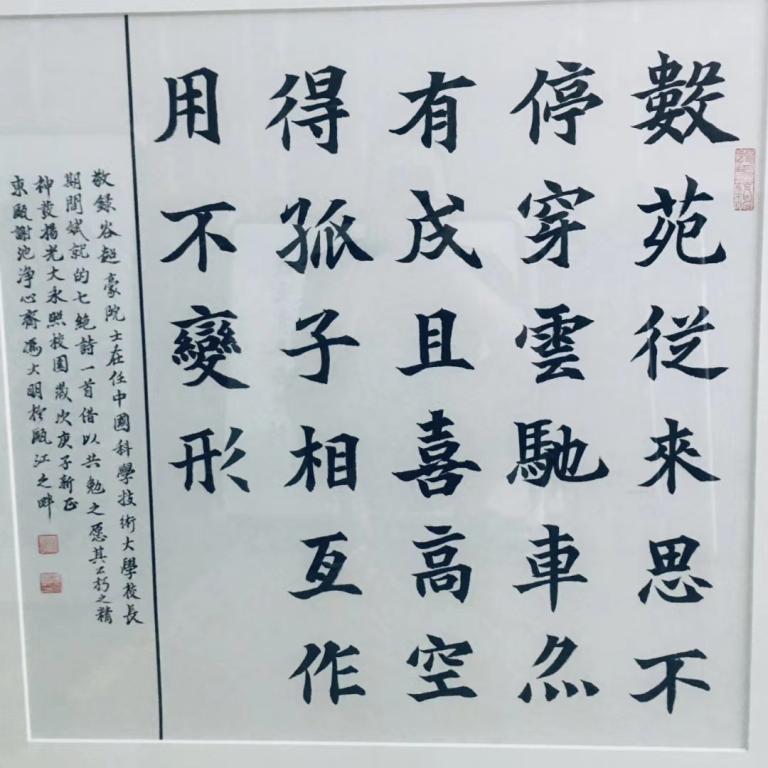 數苑從來思不
停穿雲馳車亦
有成且喜高空
得孤子相互作
用不變形
敬錄谷超豪院士在任中國科學技術大學校長
期間賦就的七絶詩一首借以共勉之愿其不朽之精
神發揚光大永照校園歲次庚子新正
東甌謝池浄心齋馮大明於甌江之畔